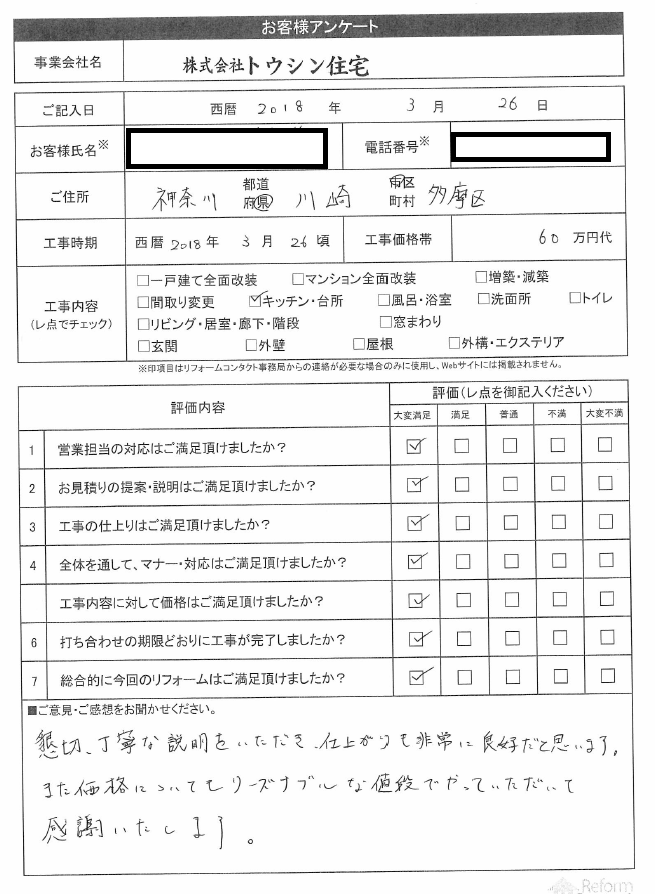 お客様アンケート
事業会社名 株式会社トウシン住宅
ご記入日 西暦 2018 年 3 月 26 日
お客様氏名※ 電話番号※
ご住所 神奈川 都道府県 川崎 市区町村 多摩区
工事時期 西暦 2018 年 3 月 26 頃 工事価格帯 60 万円代
工事内容 (レ点でチェック)
□一戸建て全面改装 □マンション全面改装 □増築・減築
□間取り変更 ☑キッチン・台所 □風呂・浴室 □洗面所 □トイレ
□リビング・居室・廊下・階段 □窓まわり
□玄関 □外壁 □屋根 □外構・エクステリア
※印項目はリフォームコンタクト事務局からの連絡が必要な場合のみに使用し、Webサイトには掲載されません。
評価内容 評価(レ点を御記入ください)
大変満足 満足 普通 不満 大変不満
1 営業担当の対応はご満足頂けましたか? ☑ □ □ □ □
2 お見積りの提案・説明はご満足頂けましたか? ☑ □ □ □ □
3 工事の仕上りはご満足頂けましたか? ☑ □ □ □ □
4 全体を通して、マナー・対応はご満足頂けましたか? ☑ □ □ □ □
工事内容に対して価格はご満足頂けましたか? ☑ □ □ □ □
6 打ち合わせの期限どおりに工事が完了しましたか? ☑ □ □ □ □
7 総合的に今回のリフォームはご満足頂けましたか? ☑ □ □ □ □
■ご意見・ご感想をお聞かせください。
懇切、丁寧な説明をいただき、仕上がりも非常に良好だと思います。
また価格についてもリーズナブルな値段でやっていただいて
感謝いたします。
Reform